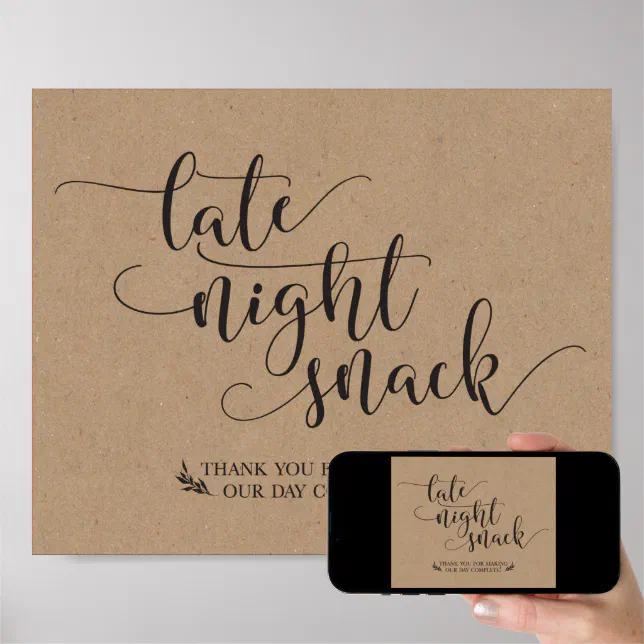 late
night
snack
THANK YOU
OUR DAY
late
night
snack
THANK YOU FOR MAKING
OUR DAY COMPLETE!